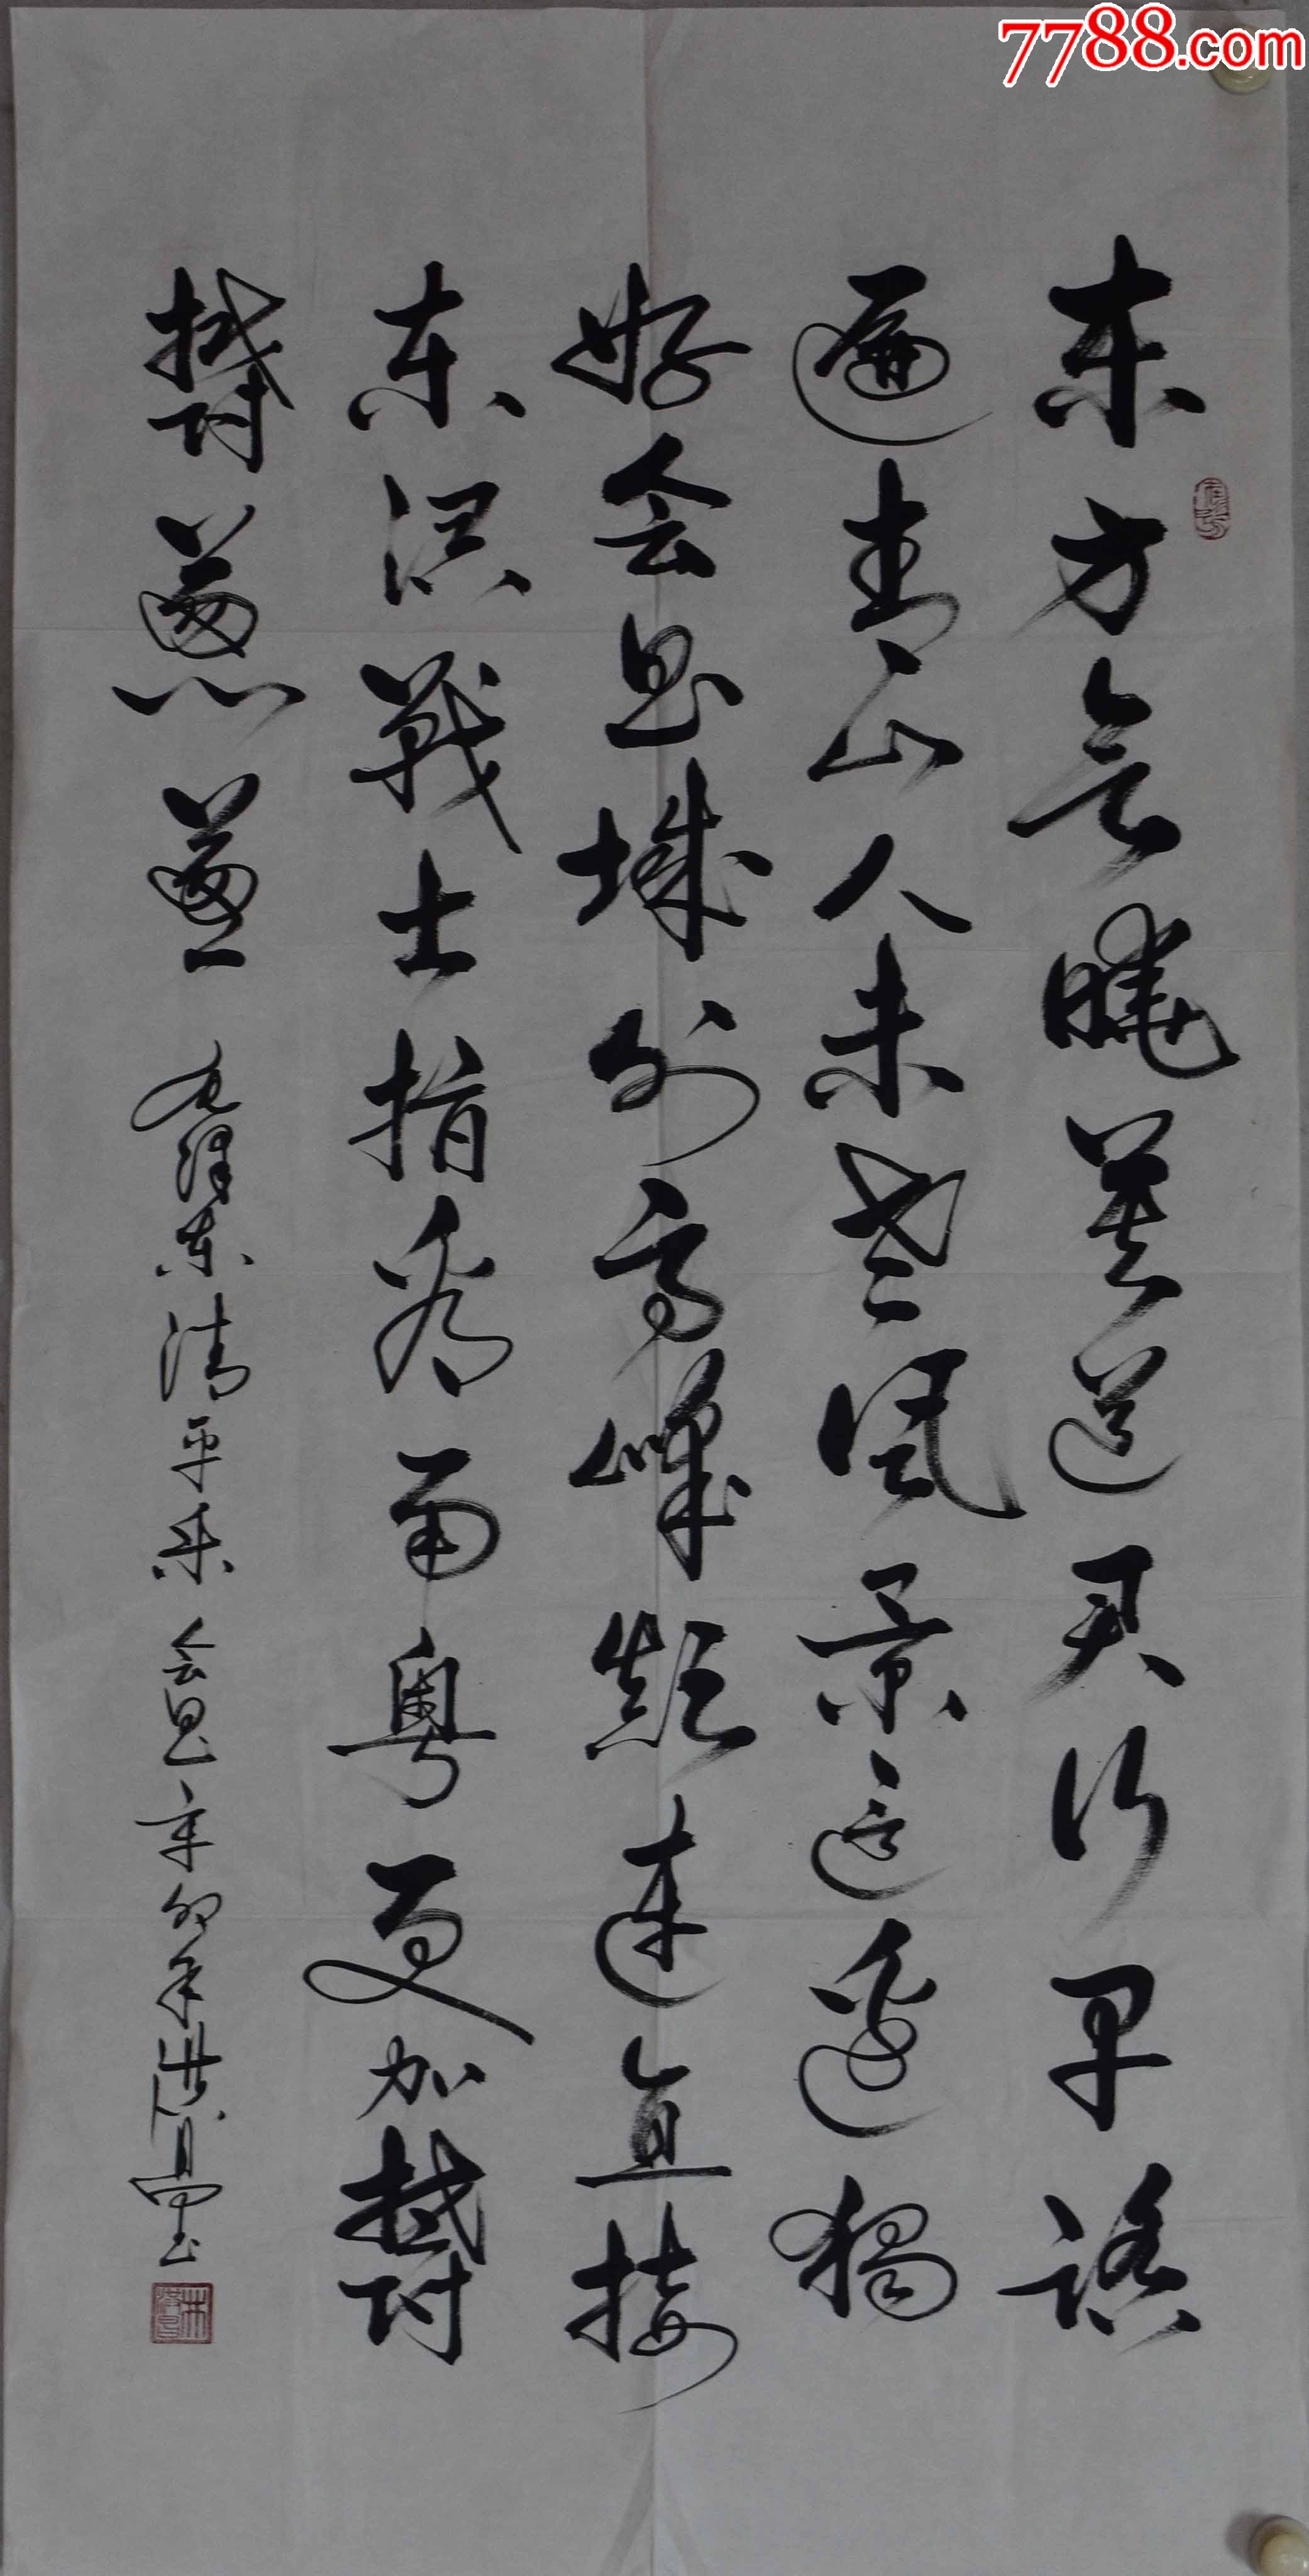 7788.com
东方欲晓莫道君行早踏
遍青山人未老风景这边獨
好会昌城外高峰颠连直接
东溟戰士指看南粤更加鬱
鬱葱葱 毛泽东清平乐会昌 辛卯年